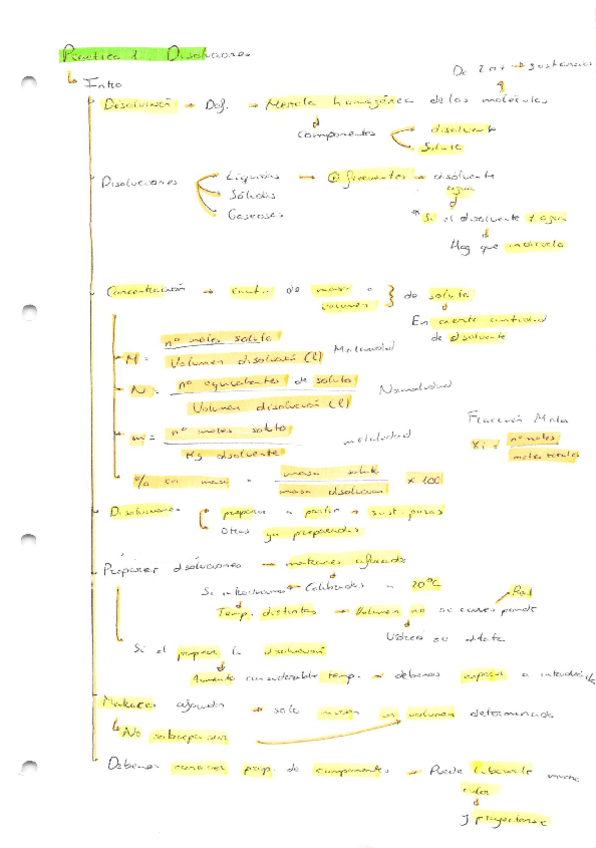 Práctica 1. Disoluciones
Intro
De 2 o + → sustancias
Disolución → Def. → Mezcla homogénea de las moléculas
componentes
disolvente
Soluto
Disoluciones
Líquidas → ⊕ frecuentes → disolvente
agua
Sólidas
Gaseosas
* Si el disolvente ≠ agua
Hay que indicarlo
Concentración → cant. de masa o
volumen } de soluto
En cierta cantidad
de disolvente
M = nº moles soluto
Volumen disolución (l) Molaridad
N = nº equivalentes de soluto
Volumen disolución (l) Normalidad
m = nº moles soluto
Kg disolvente molalidad
Fracción Molar
Xi = nº moles
moles totales
% en masa = masa soluto
masa disolución x 100
Disoluciones
preparar a partir → sust. puras
Otras ya preparadas
Preparar disoluciones → matraces aforados
Si Calibrados 20ºC
Temp. distintas → Volumen no se corresponde
Real
Vidrio se dilata
Si al preparar la disolución
Aumento considerable temp. → debemos esperar a
Matraces aforados → solo miden un volumen determinado
No sobrepasar
Debemos conocer prop. de componentes → Puede liberarse mucho
calor
y proyectarse